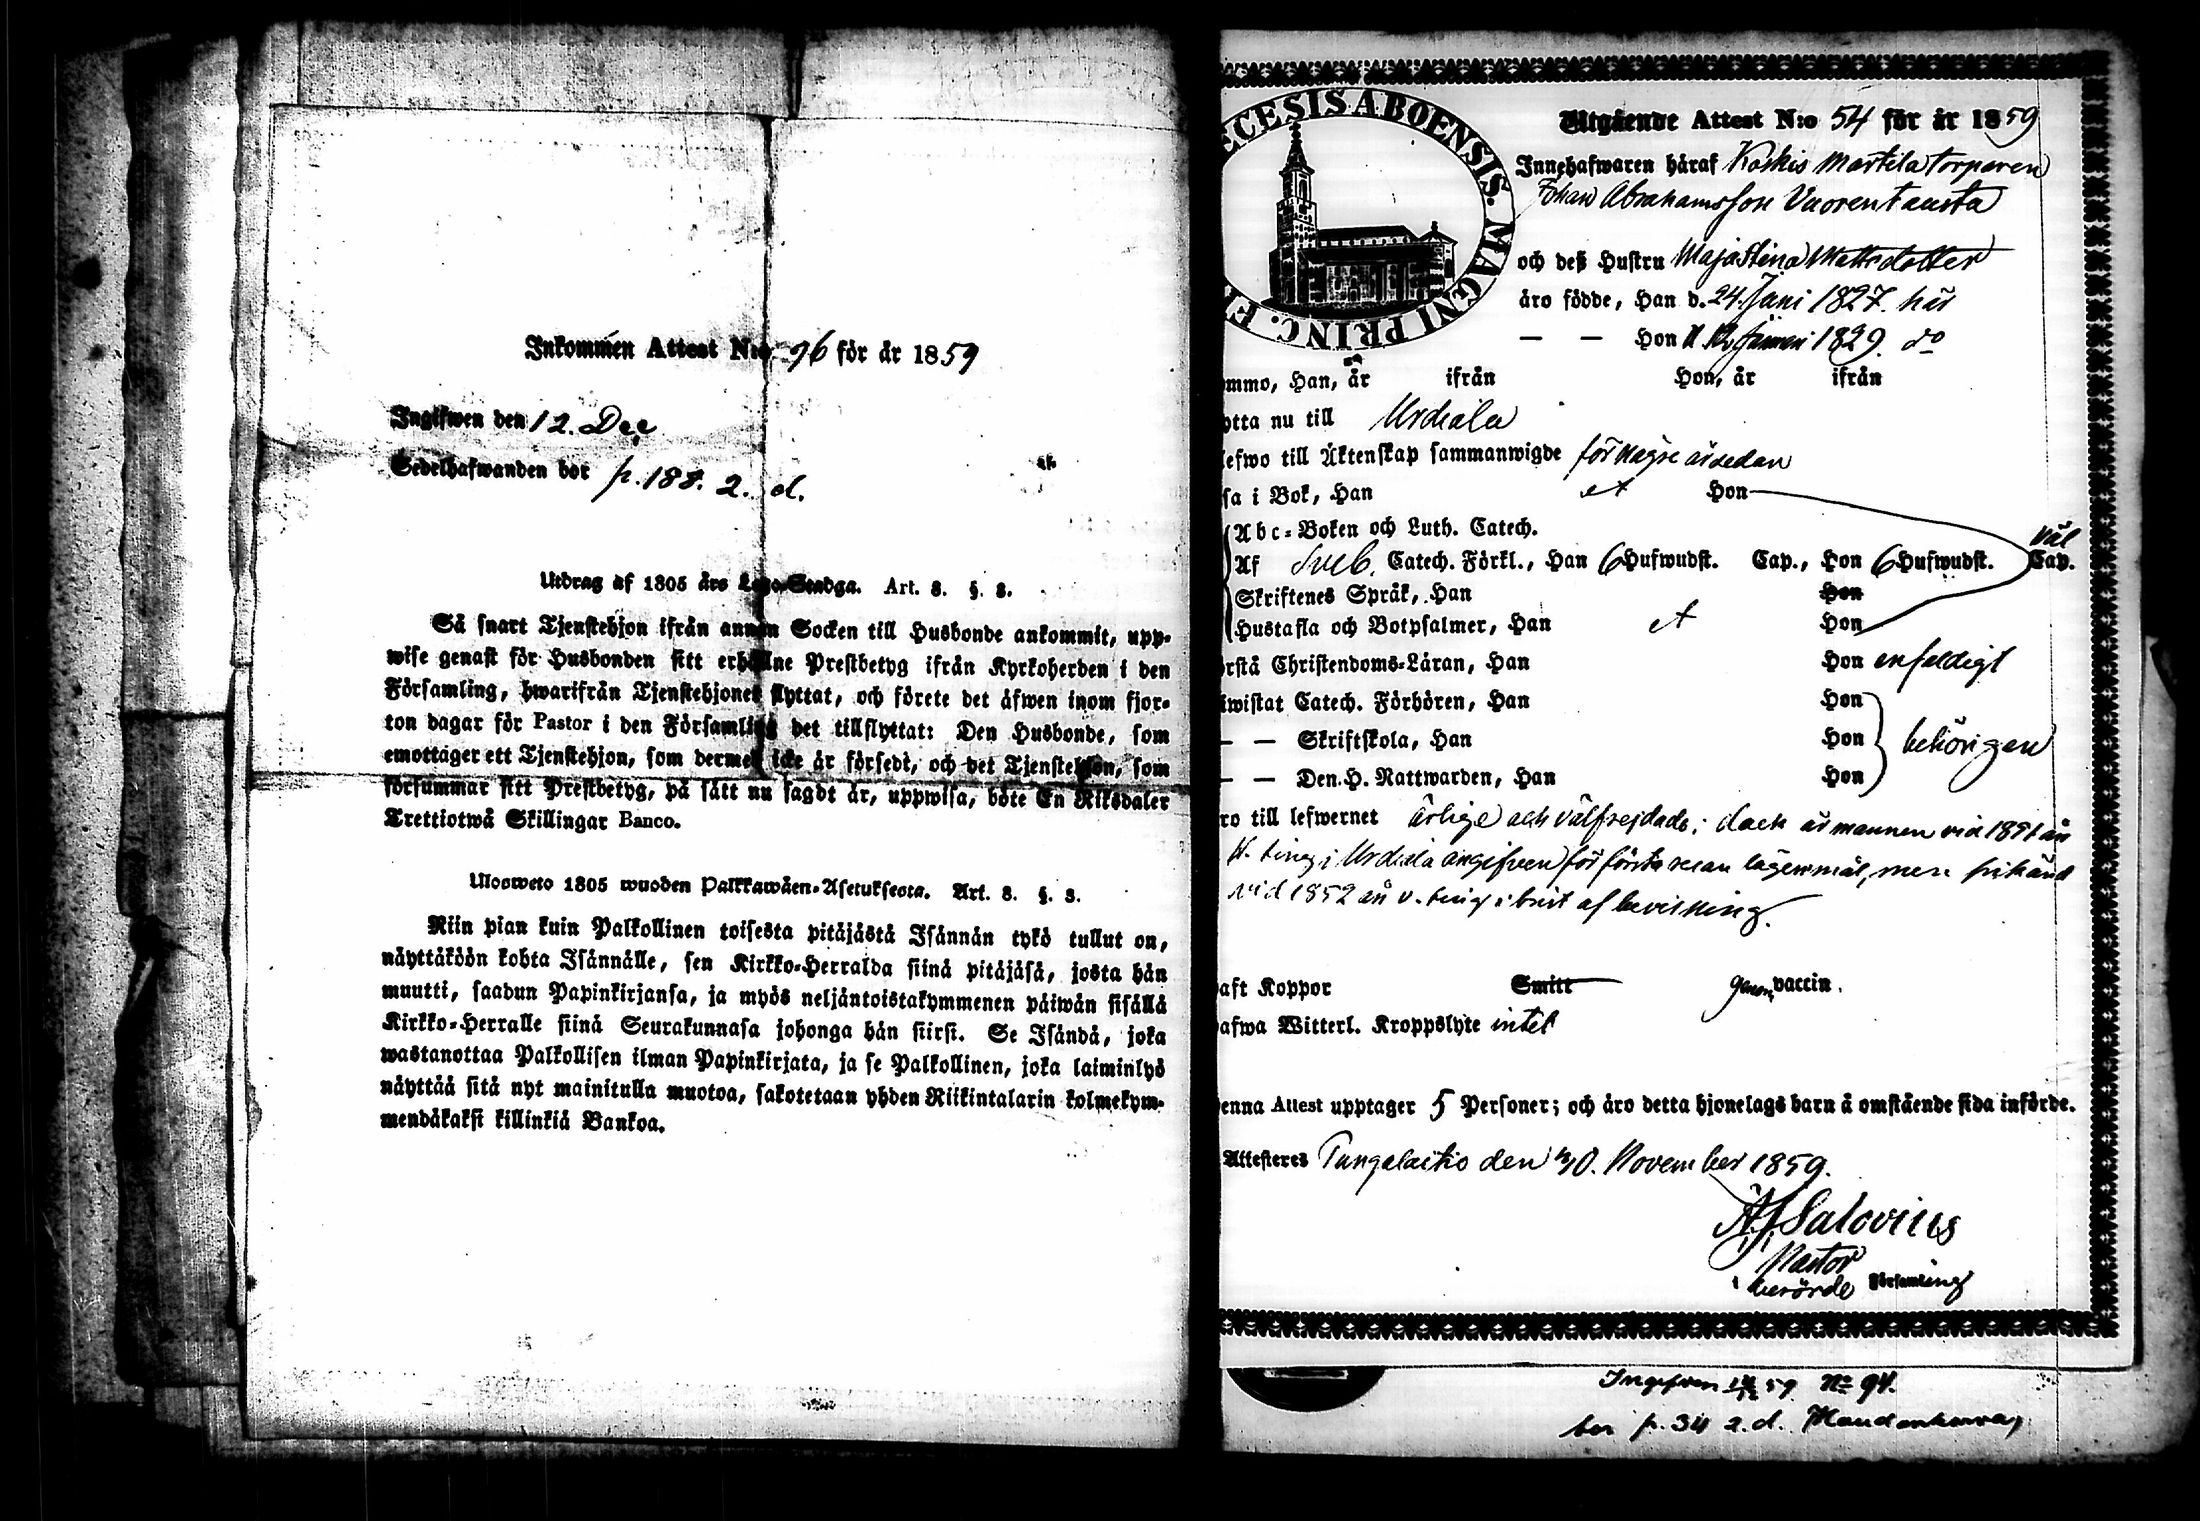 Inkommen Attest N:o 96 för år 1859
Ingifwen den 12. Dec
Sedelhafwanden bor p. 188. 2. d.
Utdrag af 1805 års Lego-Stadga. Art. 8. §. 3.
Så snart Tjenstehjon ifrån annan Socken till Husbonde ankommit, upp-
wise genast för Husbonden sitt erhållne Prestbetyg ifrån Kyrkoherden i den
Församling, hwarifrån Tjenstehjonet flyttat, och förete det äfwen inom fjor-
ton dagar för Pastor i den Församling det tillflyttat: Den Husbonde, som
emottager ett Tjenstehjon, som dermed icke är försedt, och det Tjenstehjon, som
försummar sitt Prestbetyg, på sätt nu sagdt är, uppwisa, böte En Riksdaler
Trettiotwå Skillingar Banco.
Ulosweto 1805 wuoden Palkkawäen-Asetuksesta. Art. 8. §. 3.
Niin pian kuin Palkollinen toisesta pitäjästä Isännän tykö tullut on,
näyttäköön kohta Isännälle, sen Kirkko-Herralda siinä pitäjäsä, josta hän
muutti, saadun Papinkirjansa, ja myös neljäntoistakymmenen päiwän sisällä
Kirkko-Herralle siinä Seurakunnasa johonga hän siirsi. Se Isändä, joka
wastanottaa Palkollisen ilman Papinkirjata, ja se Palkollinen, joka laiminlyö
näyttää sitä nyt mainitulla muotoa, sakotetaan yhden Riikintalarin kolmekym-
mendäkaksi killinkiä Bankoa.
ECESIS ABOENSIS. MAGNI PRINC. F
Utgående Attest N:o 54 för år 1859
Innehafwaren häraf Koskis Martela torparen
Johan Abrahamsson Vuorentausta
och deß Hustru Maja Stina Mattsdotter
äro födde, Han d. 24. Juni 1827. här
— — Hon d. 1829. do
ommo, Han, år ifrån Hon, år ifrån
ytta nu till Urdiala
lefwo till Äktenskap sammanwigde för någre år sedan
sa i Bok, Han Hon
Abc-Boken och Luth. Catech.
Af Sveb. Catech. Förkl., Han 6 Hufwudst. Cap., Hon 6 Hufwudst. Cap. väl
Skriftenes Språk, Han Hon
Hustafla och Botpsalmer, Han Hon
rstå Christendoms-Läran, Han Hon enfaldigt
iwistat Catech. Förhören, Han Hon
— — Skriftskola, Han Hon behörigen
— — Den H. Nattwarden, Han Hon
ro till lefwernet ärlige och välfrejdade; dock är mannen vid 1851 års
h. ting i Urdiala angifven för första resan lägersmål, men frikänd
vid 1852 års v. ting i brist af bevisning.
aft Koppor Smitt genom vaccin.
afwa Witterl. Kroppslyte intet
enna Attest upptager 5 Personer; och äro detta hjonelags barn å omstående sida införde.
Attesteres Tungalaitio den 30. November 1859.
Salovius
Pastor
i berörde Församling
Ingifven 59 No 94.
bor p. 34 2. d.